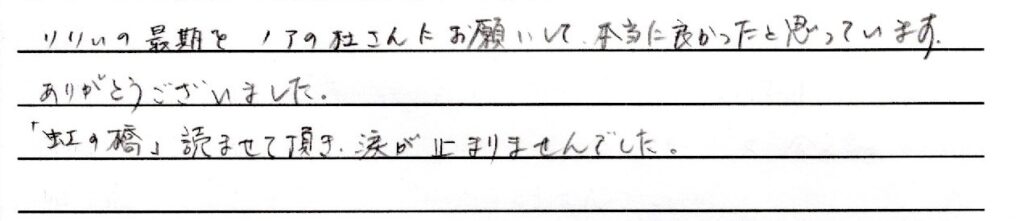 リリィの最期を ノアの杜さんにお願いして、本当に良かったと思っています。
ありがとうございました。
「虹の橋」読ませて頂き、涙が止まりませんでした。